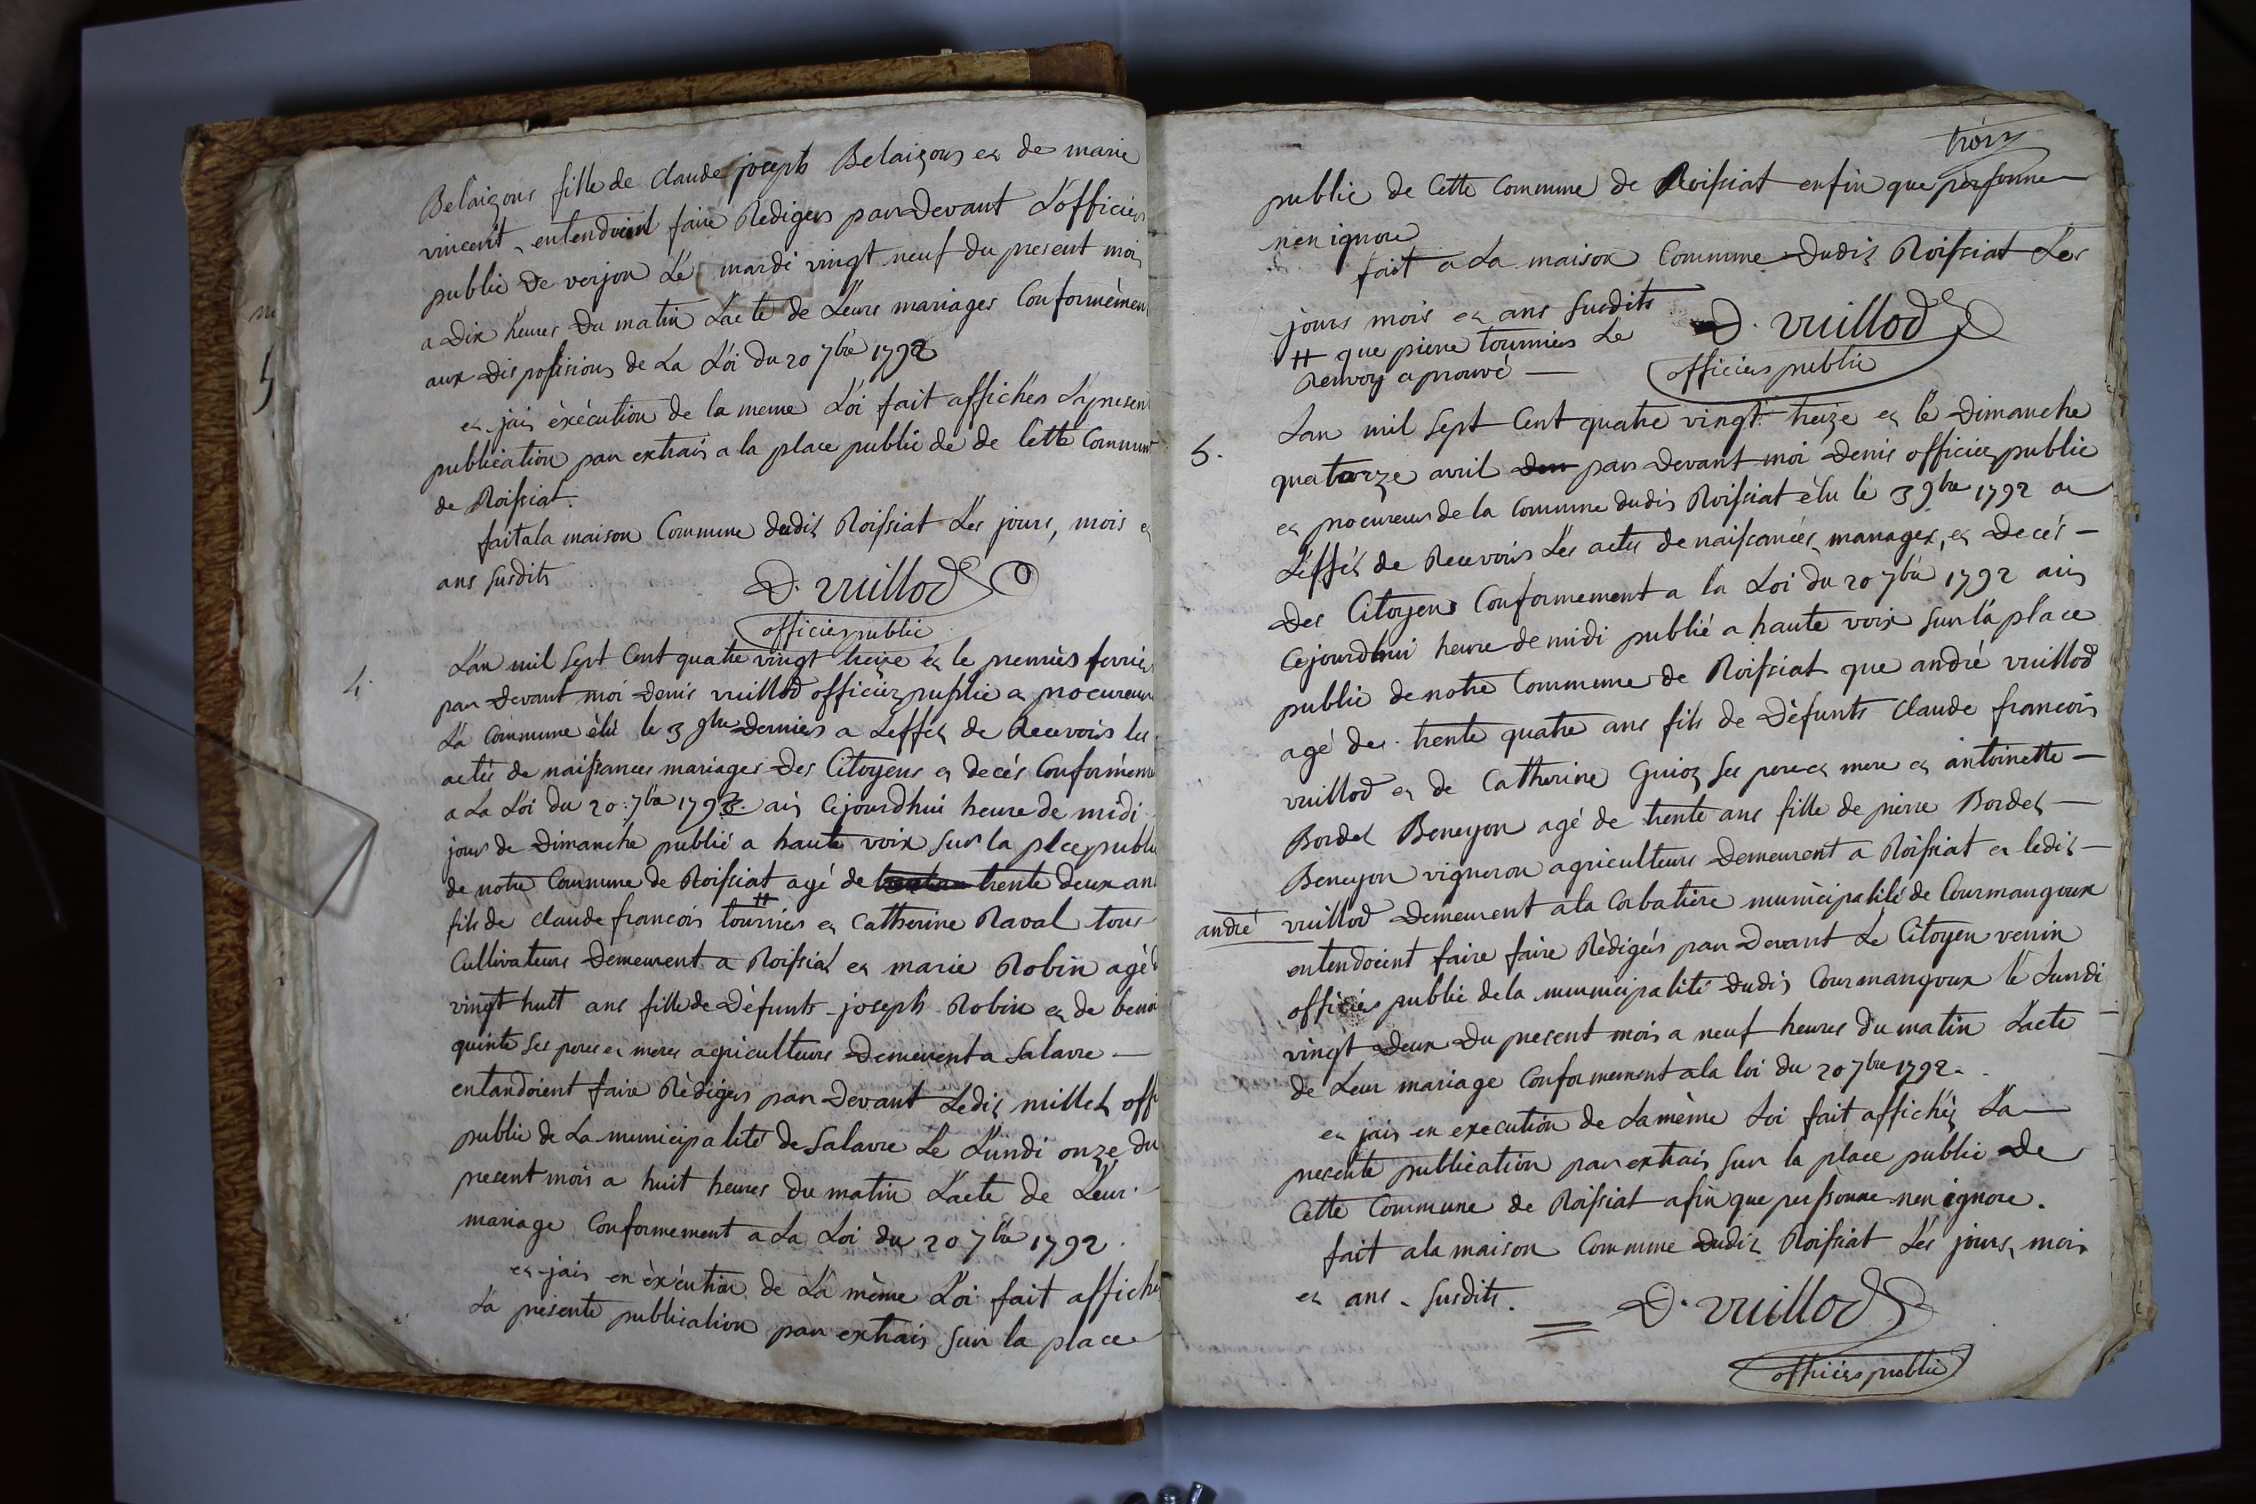 Belaisons fille de claude joseph Belaisons et de marie
vincent, entendoient faire Rédigers par Devant L'officiers
public de verjon Le mardi vingt neuf du present moi
a dix heures du matin L'acte de Leurs mariages Conformèmen
aux dispossisions de La Loi du 20 7bre 1792
et jais èxécution de la meme Loi fait afficher La presen
publication par extrais a la place public de de Cette Commun
de Roissiat.
fait a la maison Commune dudit Roissiat Les jours, mois et
ans susdits D. vuillod
officier public
4. L'an mil sept Cent quatre vingt treize et le premiers fevrier
par devant moi denis vuillod officier public et procureur
La Commune élu le 3 9bre derniers a Leffet de Recevoirs les
actes de naissances mariages des Citoyens et decés Conformèmen
a La Loi du 20 7bre 1792. ais Cejourdhui heure de midi
jour de dimanche publié a haute voix sur la plce public
de notre Commune de Roissiat agé de trente deux an
fils de claude francois tourniers et Catherine Raval tous
Cultivateurs Demeurent a Roissiat et marie Robin agé
vingt huit ans fille de Défunts joseph Robin et de benoi
quinte ses peres et meres agriculteurs Demeurent a Salavre —
entandoient faire Rèdigers par Devant Ledit millet offi
public de La municipalité de Salavre Le Lundi onze du
present mois a huit heures du matin L'acte de Leur
mariage Conformement a La Loi du 20 7bre 1792.
et jais en èxécution de La mème Loi fait affiche
La présente publication par extrais sur la place
trois
public de Cette Commune de Roissiat enfin que personne
n'en ignore
fait a La maison Commune dudit Roissiat Les
jours mois et ans susdits D. vuillod
# que pierre tourniers Le
Renvoy aprouvé — officiers public
5. L'an mil sept Cent quatre vingt treize et le dimanche
quatorze avril par devant moi denis officier public
et procureur de la Commune dudit Roissiat élu le 3 9bre 1792 a
L'éffét de Recevoirs Les actes de naissances, mariages, et decés —
des Citoyens Conformement a la Loi du 20 7bre 1792 ais
Cejourdhui heure de midi publié a haute voix sur la place
public de notre Commune de Roissiat que andré vuillod
agé de trente quatre ans fils de Défunts claude francois
vuillod et de Catherine Guiot ses pere et mere et antoinette —
Bordet Beneyon agé de trente ans fille de pierre Bordet —
Beneyon vigneron agriculteurs Demeurent a Roissiat et ledit —
andré vuillod Demeurent a la Corbatière municipalité de Courmangoux
entendoient faire faire Rèdigérs par Devant Le Citoyen
officiés public de la mumicipalité dudit Courmangoux le Lundi
vingt deux du present mois a neuf heures du matin L'acte
de Leur mariage Conformement a la loi du 20 7bre 1792.
et jais en execution de La mème Loi fait affichér La
presente publication par extrais sur la place public de
Cette Commune de Roissiat afin que perssonne n'en ignore.
fait a la maison Commune dudit Roissiat Les jours, mois
et ans susdits. D. vuillod
officiers public